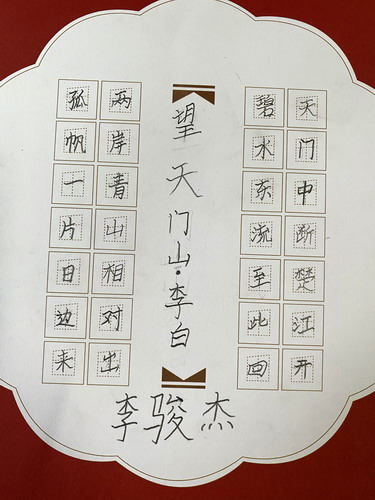 天门中断楚江开
碧水东流至此回
望天门山·李白
两岸青山相对出
孤帆一片日边来
李骏杰